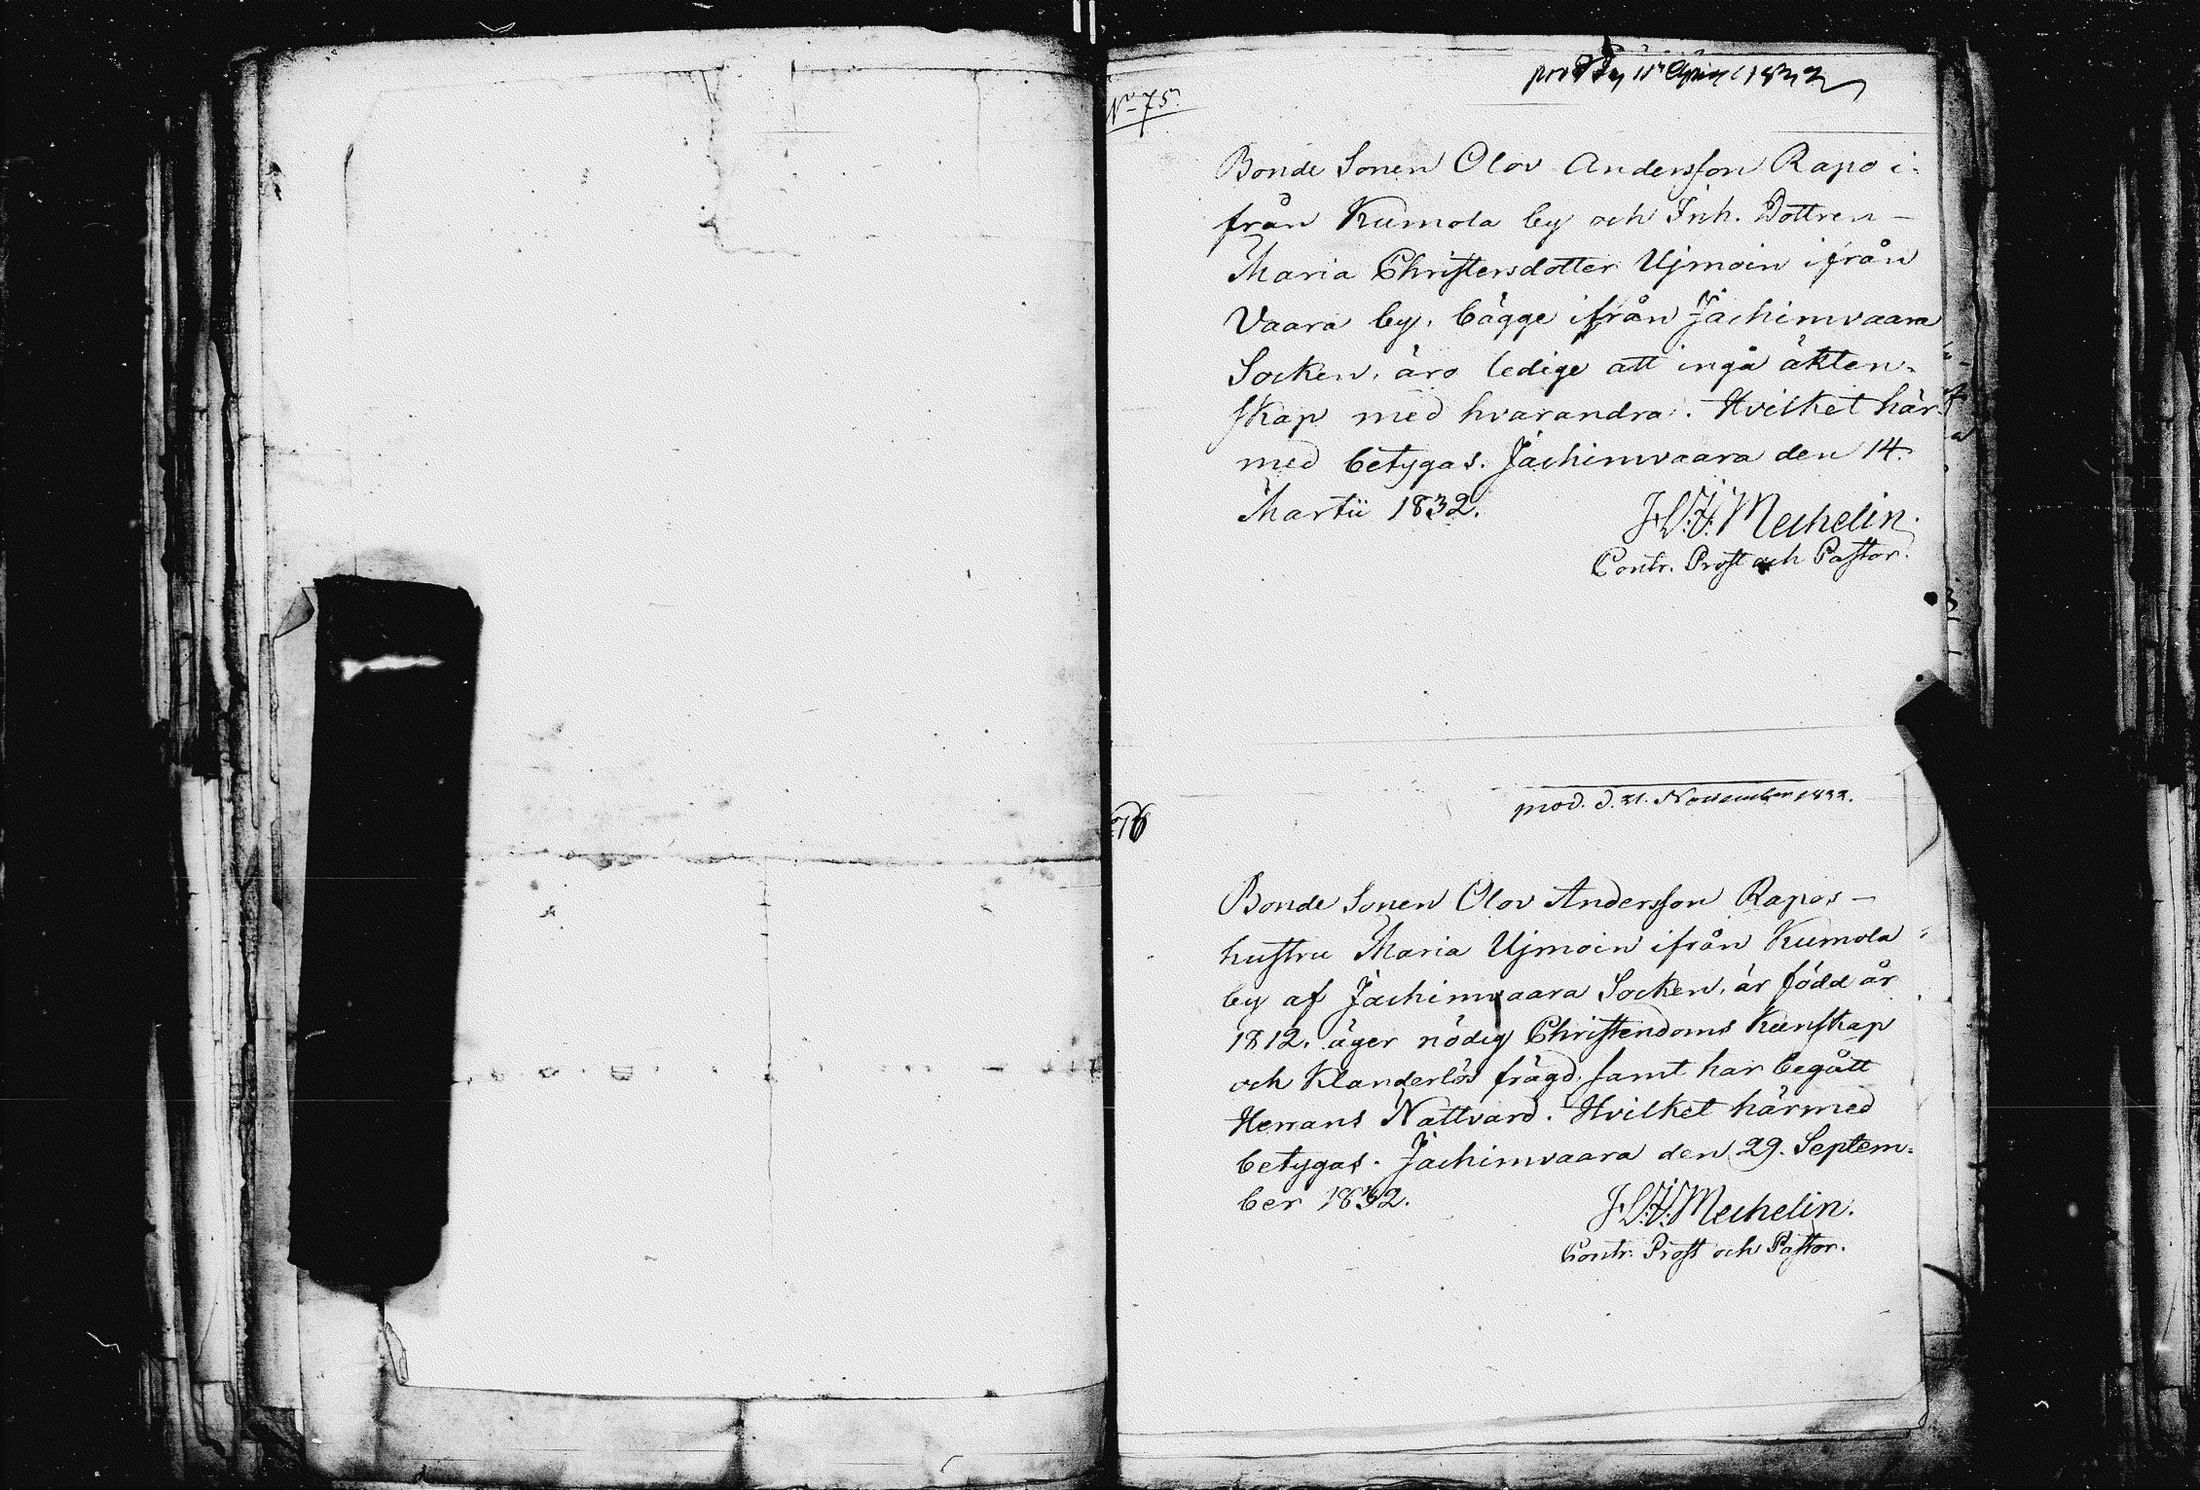 No 75.
prod. den 11 April 1832
Bonde Sonen Olov Andersson Rapo i:
från Kumola by och Inh. Dottren –
Maria Christersdotter Ujmoin ifrån
Vaara by, bägge ifrån Jachimvaara
Socken, äro ledige att ingå äkten-
skap med hvarandra. Hvilket här-
med betygas. Jachimvaara den 14.
Martii 1832.
J.D.F. Mechelin.
Contr. Prost och Pastor.
76
prod. d. 21. November 1832.
Bonde Sonen Olov Andersson Rapos –
hustru Maria Ujmoin ifrån Kumola
by af Jachimvaara Socken, är född år
1812. äger nödig Christendoms Kunskap
och Klanderlös frägd, samt har begått
Herrans Nattvard. Hvilket härmed
betygas. Jachimvaara den 29. Septem-
ber 1832.
Mechelin.
Contr. Prost och Pastor.